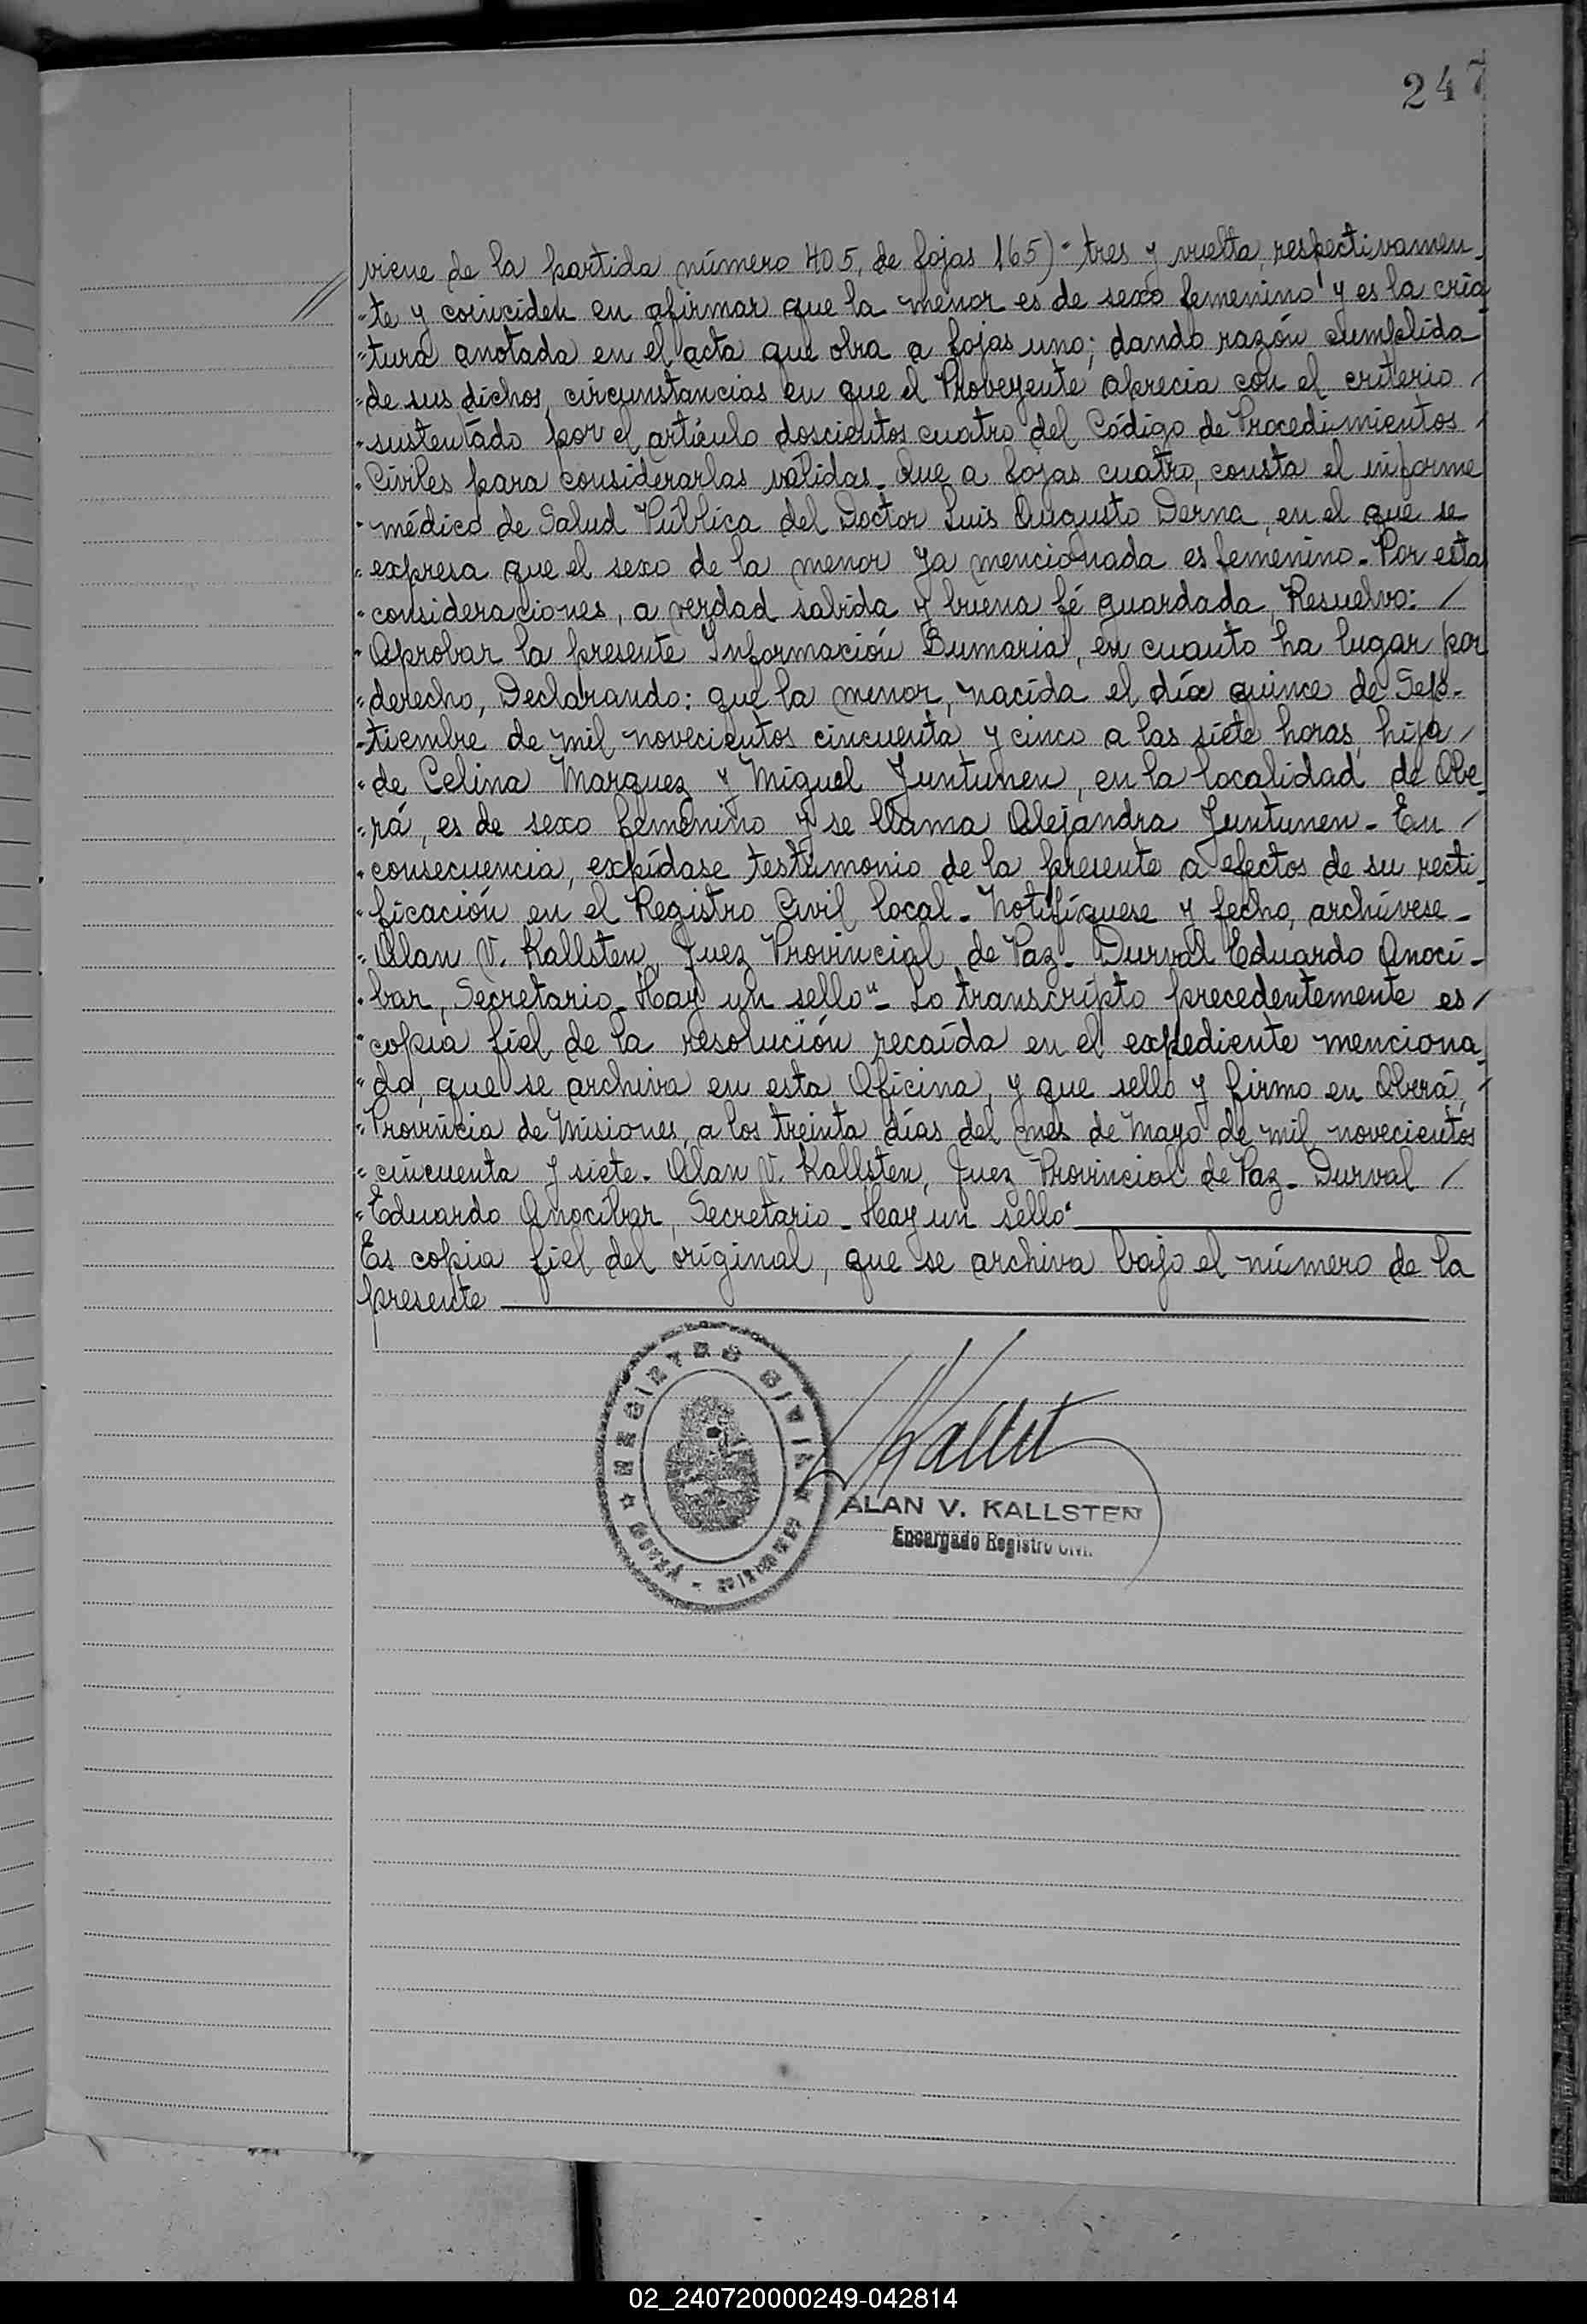 247
viene de la partida número 405, de fojas 165) "tres y vuelta, respectivamen-
"te y coinciden en afirmar que la menor es de sexo femenino y es la cria
"tura anotada en el acta que obra a fojas uno; dando razón cumplida
"de sus dichos, circunstancias en que el Proveyente aprecia con el criterio /
"sustentado por el artículo doscientos cuatro del Código de Procedimientos /
"Civiles para considerarlas válidas. Que a fojas cuatro, consta el informe
"médico de Salud Pública del Doctor Luis Augusto Derna, en el que se
"expresa que el sexo de la menor ya mencionada es femenino. Por esta
"consideraciones, a verdad sabida y buena fé guardada, Resuelvo: /
"Aprobar la presente Información Sumaria, en cuanto ha lugar por
"derecho, Declarando: que la menor, nacida el día quince de Sep-
"tiembre de mil novecientos cincuenta y cinco a las siete horas, hija /
"de Celina Marquez y Miguel Juntunen, en la localidad de Obe-
"rá, es de sexo femenino y se llama Alejandra Juntunen. En /
"consecuencia, expídase testimonio de la presente a efectos de su recti-
"ficación en el Registro Civil local. Notifíquese y fecho, archívese.
"Alan V. Kallsten, Juez Provincial de Paz. Durval Eduardo Anocí-
"bar, Secretario. Hay un sello". Lo transcripto precedentemente es /
"copia fiel de la resolución recaída en el expediente menciona-
"do, que se archiva en esta Oficina, y que sello y firmo en Oberá, /
"Provincia de Misiones, a los treinta días del mes de Mayo de mil novecientos
"cincuenta y siete. Alan V. Kallsten, Juez Provincial de Paz. Durval /
"Eduardo Anocíbar, Secretario. Hay un sello"
Es copia fiel del original, que se archiva bajo el número de la
presente
REGISTRO CIVIL
OBERÁ - MISIONES
ALAN V. KALLSTEN
Encargado Registro Civil
02_240720000249-042814